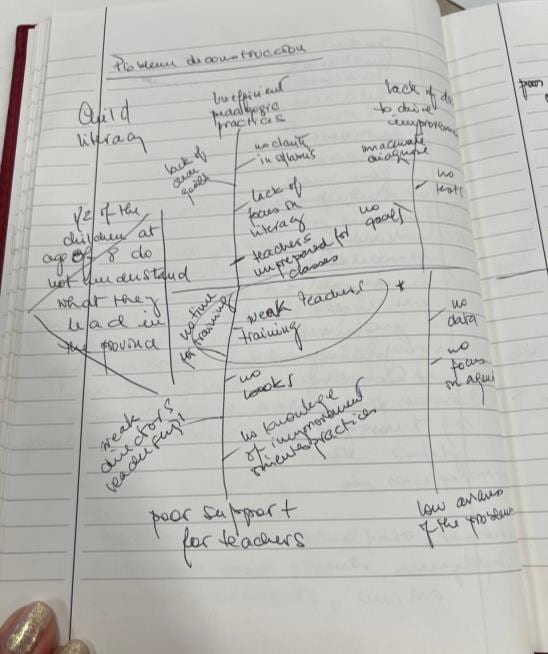 Problem deconstruction
Child
literacy
Inefficient
pedagogic
practices
lack of
to drive
lack of
clear
goals
no clarity
in syllabus
inaccurate
no
tests
lack of
focus on
literacy
no
goals
teachers
unprepared for
classes
1/2 of the
children at
age of 8 do
not understand
what they
read in
the province
no time
for training
weak teachers
training
*
no
data
no
books
no
focus
weak
directors
leadership
no knowledge
of improvement
oriented practices
poor support
for teachers
low
of the problem